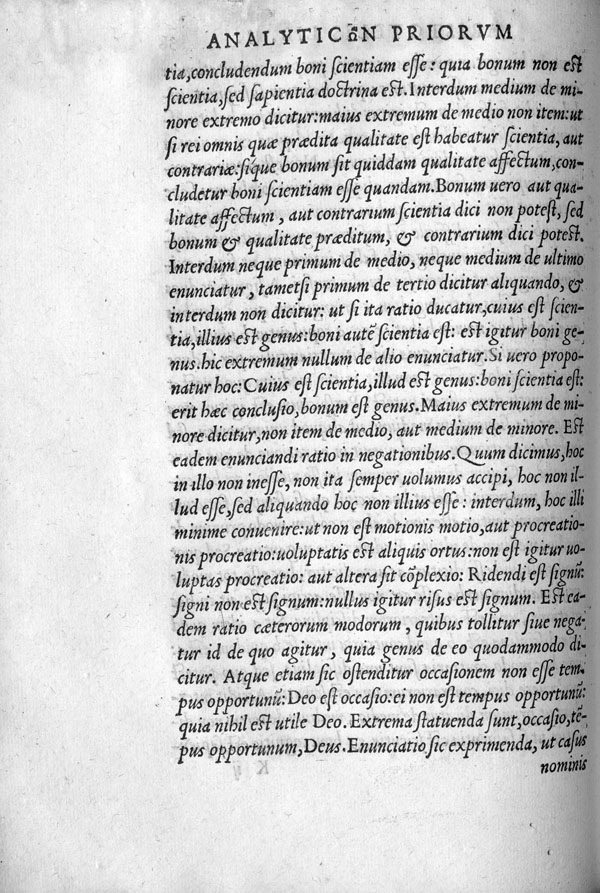 ANALYTICΩN PRIORVM
tia,concludendum boni ſcientiam eſſe: quia bonum non est
ſcientia,ſed ſapientia doctrina est.Interdum medium de mi-
nore extremo dicitur:maius extremum de medio non item:ut
ſi rei omnis quæ prædita qualitate est habeatur ſcientia, aut
contrariæ:ſiq́ue bonum ſit quiddam qualitate affectum,con-
cludetur boni ſcientiam eſſe quandam.Bonum uero aut qua-
litate affectum, aut contrarium ſcientia dici non potest, ſed
bonum & qualitate præditum, & contrarium dici potest.
Interdum neque primum de medio, neque medium de ultimo
enunciatur, tametſi primum de tertio dicitur aliquando, &
interdum non dicitur: ut ſi ita ratio ducatur,cuius est ſcien-
tia,illius est genus:boni autē ſcientia est: est igitur boni ge-
nus.hic extremum nullum de alio enunciatur.Si uero propo-
natur hoc: Cuius est ſcientia,illud est genus:boni ſcientia est:
erit hæc concluſio,bonum est genus.Maius extremum de mi-
nore dicitur,non item de medio, aut medium de minore. Est
eadem enunciandi ratio in negationibus.Quum dicimus,hoc
in illo non ineſſe, non ita ſemper uolumus accipi, hoc non il-
lud eſſe,ſed aliquando hoc non illius eſſe: interdum, hoc illi
minime conuenire:ut non est motionis motio,aut procreatio-
nis procreatio:uoluptatis est aliquis ortus:non est igitur uo-
luptas procreatio: aut altera ſit cōplexio: Ridendi est ſignū:
ſigni non est ſignum:nullus igitur riſus est ſignum. Est ea-
dem ratio cæterorum modorum, quibus tollitur ſiue nega-
tur id de quo agitur, quia genus de eo quodammodo di-
citur. Atque etiam ſic ostenditur occaſionem non eſſe tem-
pus opportunū: Deo est occaſio:ei non est tempus opportunū:
quia nihil est utile Deo. Extrema statuenda ſunt,occaſio,tē-
pus opportunum,Deus.Enunciatio ſic exprimenda, ut caſus
nominis